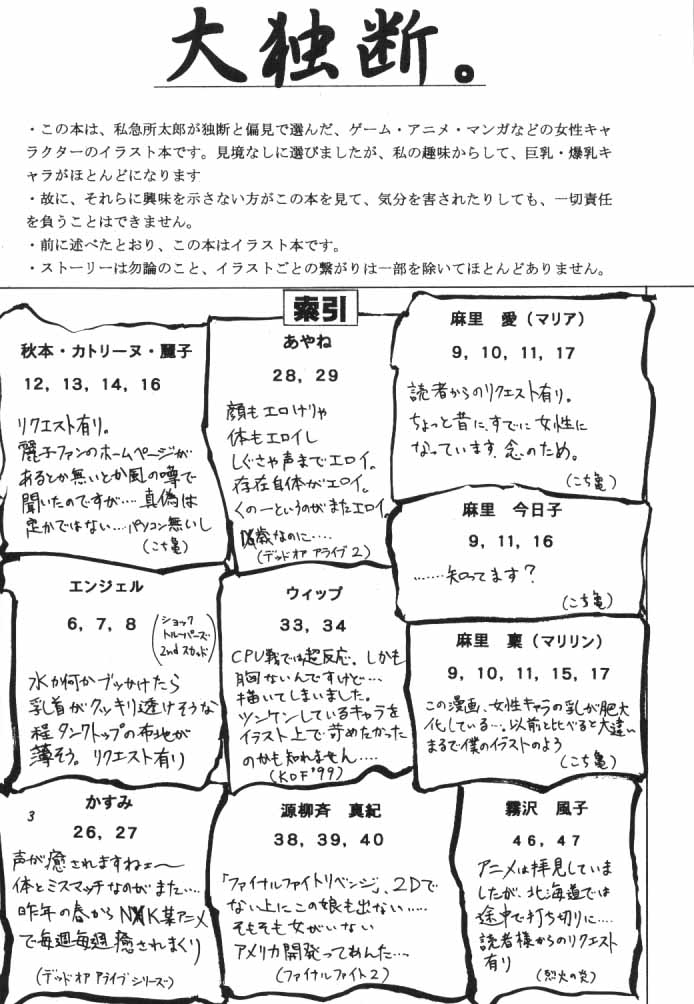 大独断。
・この本は、私急所太郎が独断と偏見で選んだ、ゲーム・アニメ・マンガなどの女性キャ
ラクターのイラスト本です。見境なしに選びましたが、私の趣味からして、巨乳・爆乳キ
ャラがほとんどになります
・故に、それらに興味を示さない方がこの本を見て、気分を害されたりしても、一切責任
を負うことはできません。
・前に述べたとおり、この本はイラスト本です。
・ストーリーは勿論のこと、イラストごとの繋がりは一部を除いてほとんどありません。
索引
秋本・カトリーヌ・麗子
12, 13, 14, 16
リクエスト有り。
麗子ファンのホームページが
あるとか無いとか風の噂で
聞いたのですが‥‥真偽は
定かではない‥‥パソコン無いし
(こち亀)
あやね
28, 29
顔もエロけりゃ
体もエロイし
しぐさや声までエロイ。
存在自体がエロイ。
くの一というのがまたエロイ。
歳なのに‥‥
(デッド オア アライブ2)
麻里 愛(マリア)
9, 10, 11, 17
読者からのリクエスト有り。
ちょっと昔に、すでに女性に
なっています、念のため。
(こち亀)
麻里 今日子
9, 11, 16
‥‥‥知ってます?
(こち亀)
エンジェル
6, 7, 8
(ショック
トルーパーズ
2nd スカッド)
水か何かブッかけたら
乳首がクッキリ透けそうな
程タンクトップの布地が
薄そう。リクエスト有り
ウィップ
33, 34
CPU戦では超反応、しかも
胸ないんですけど‥‥
描いてしまいました。
ツンケンしているキャラを
イラスト上で苛めたかった
のかも知れません‥‥
(KOF'99)
麻里 稟(マリリン)
9, 10, 11, 15, 17
この漫画、女性キャラの乳が肥大
化している‥‥。以前と比べると大違い
まるで僕のイラストのよう
(こち亀)
3
かすみ
26, 27
声が癒されますねェ〜
体とミスマッチなのがまた‥‥
昨年の春からNHK某アニメ
で毎週毎週癒されまくり
(デッド オア アライブ シリーズ)
源柳斉 真紀
38, 39, 40
「ファイナルファイトリベンジ」、2Dで
ない上にこの娘も出ない‥‥‥
そもそも女がいない
アメリカ開発ってあんた‥‥
(ファイナルファイト2)
霧沢 風子
46, 47
アニメは拝見していま
したが、北海道では
途中で打ち切りに‥‥
読者様からのリクエスト
有り
(烈火の炎)